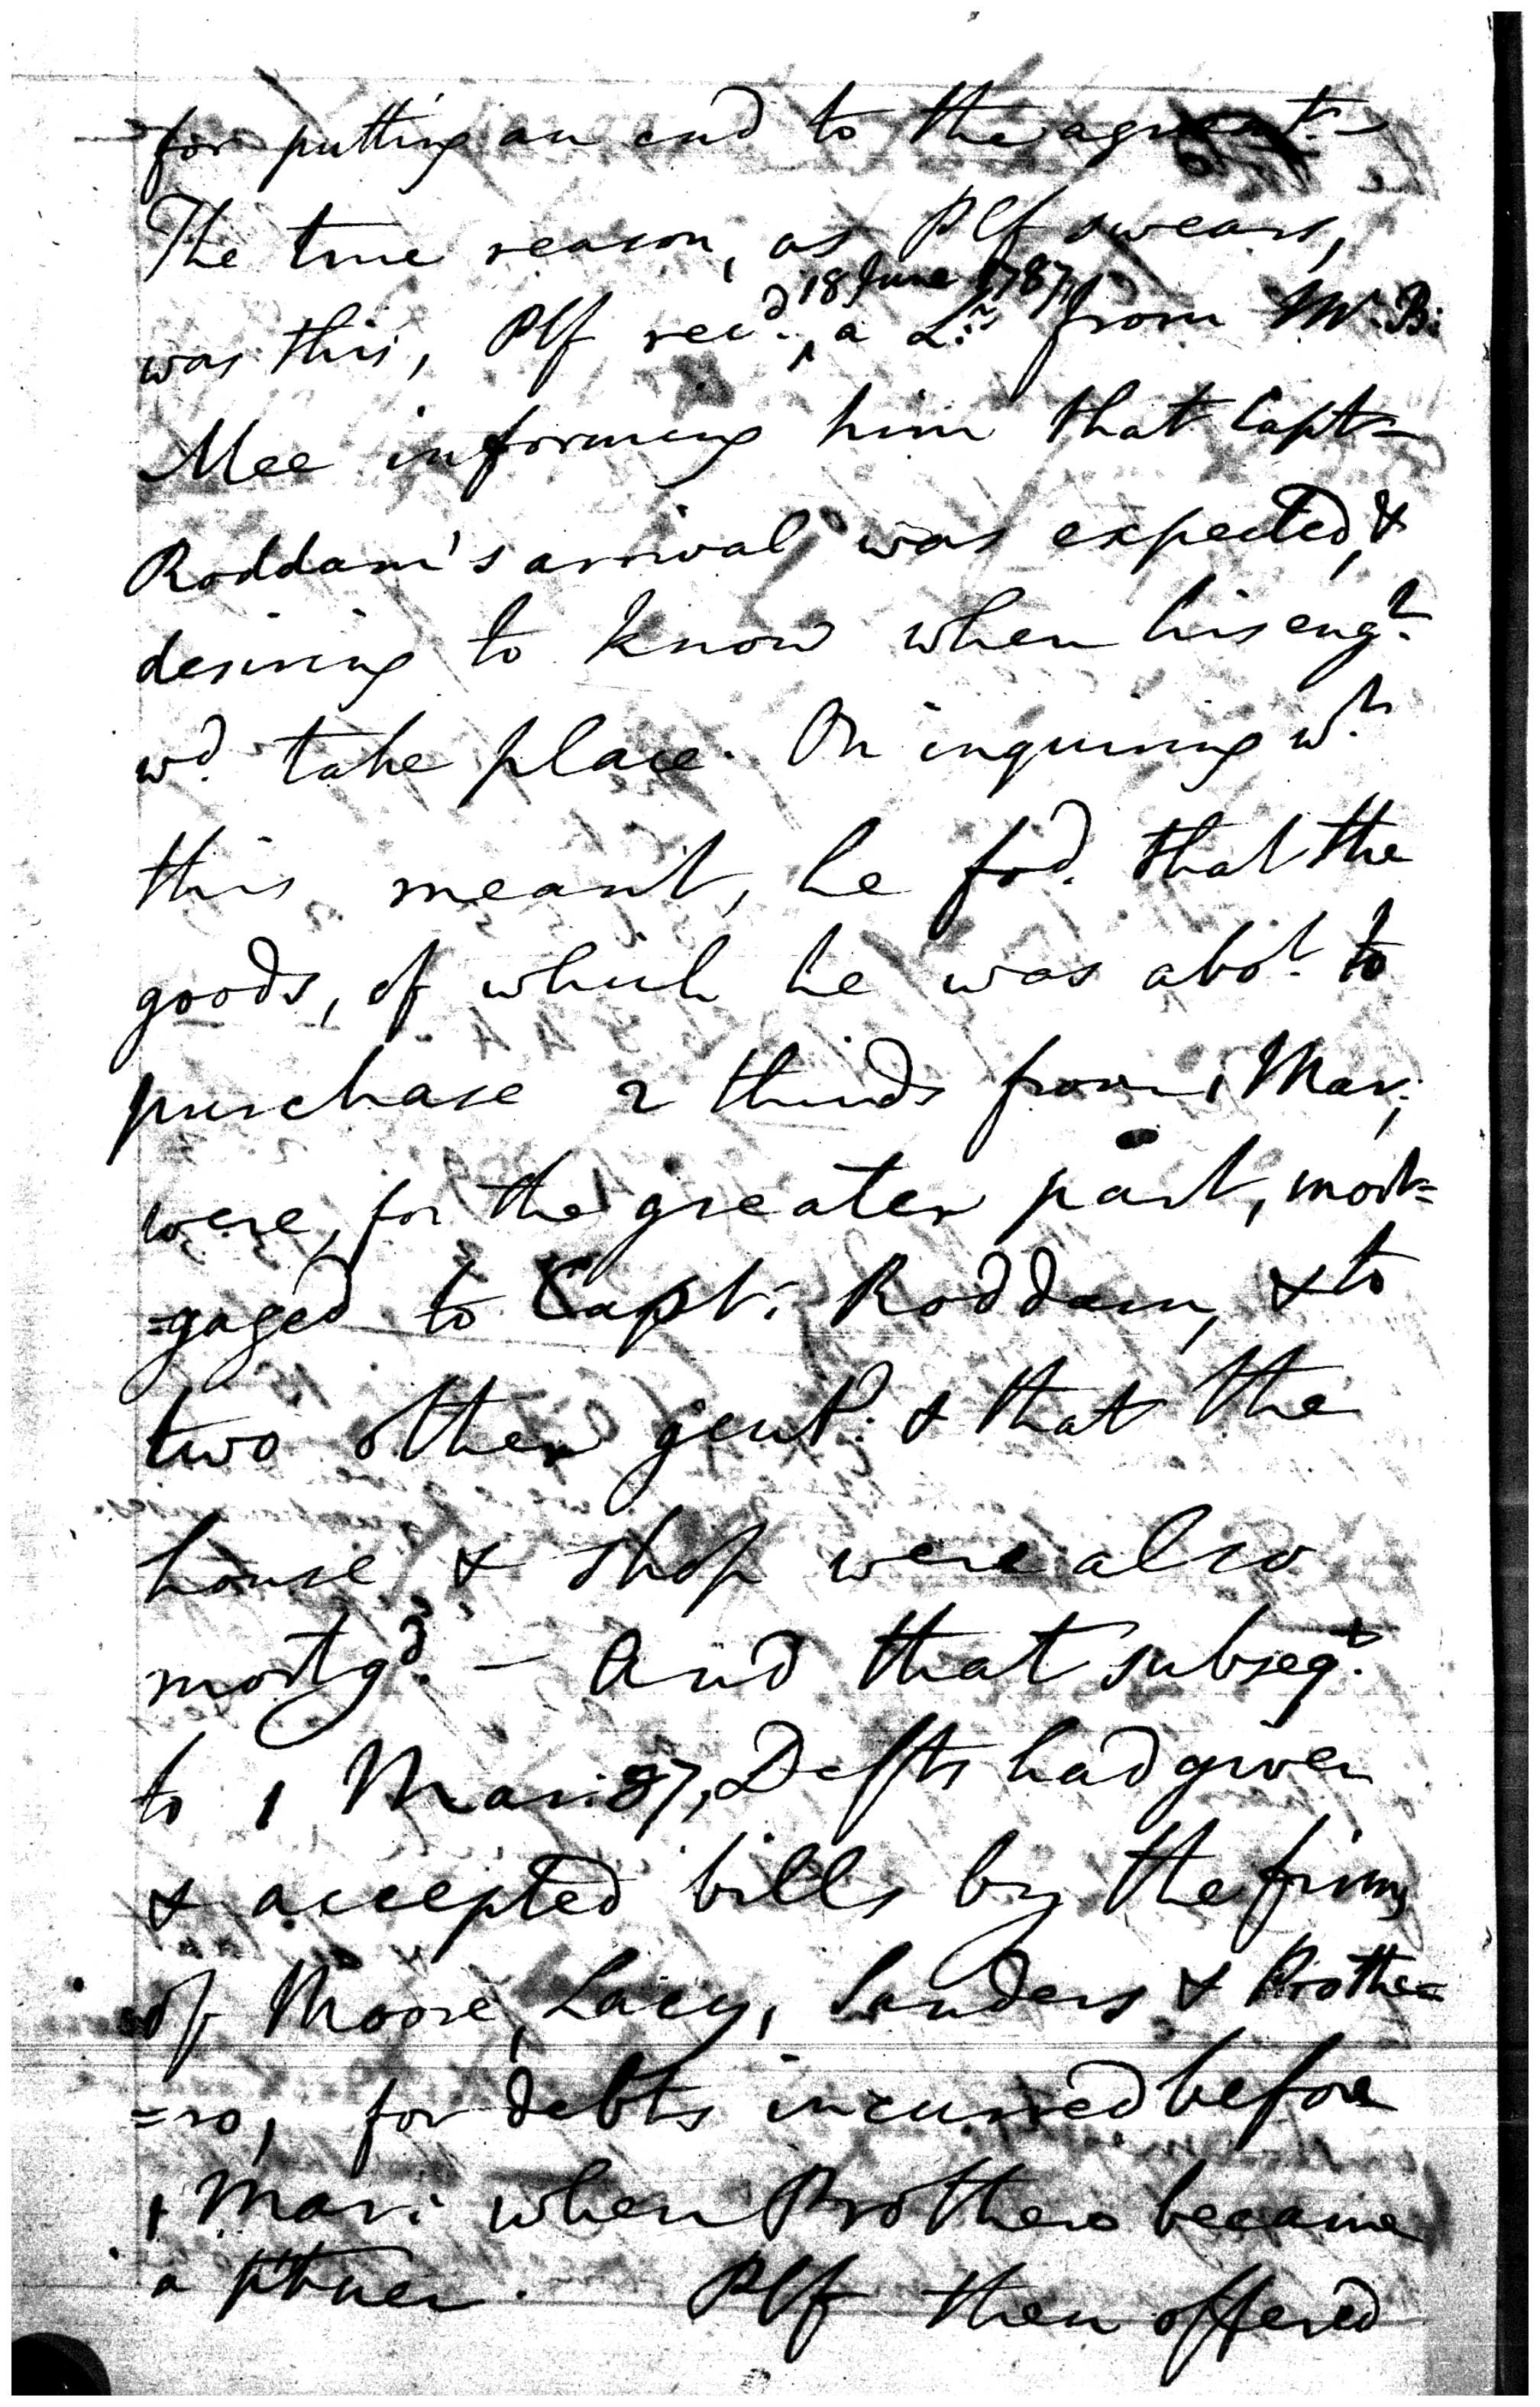 for putting an end to the agreent. –
The true reason, as Plf swears,
was this, Plf recd. ^18 June 1787,^ a Lr. from Mr. B:
Mee informing him that Capt=
Roddam's arrival was expected, &
desiring to know when his engt.
wd. take place. On inquiring wt.
this meant, he fod. that the
goods, of which he was abot. to
purchase 2 thirds from 1 Mar;
were, for the greater part, mort=
=gaged to Capt: Roddam, & to
two other gent. & that the
house & shop were also
mortgd. – And that subseqt.
to 1 Mar: 87, Defts had given
& accepted bills by the firm
of Moore, Lacy, Sanders & Brothe=
=ro, for debts incurred before
1 Mar: when Brothero became
a ptner. Plf then offered